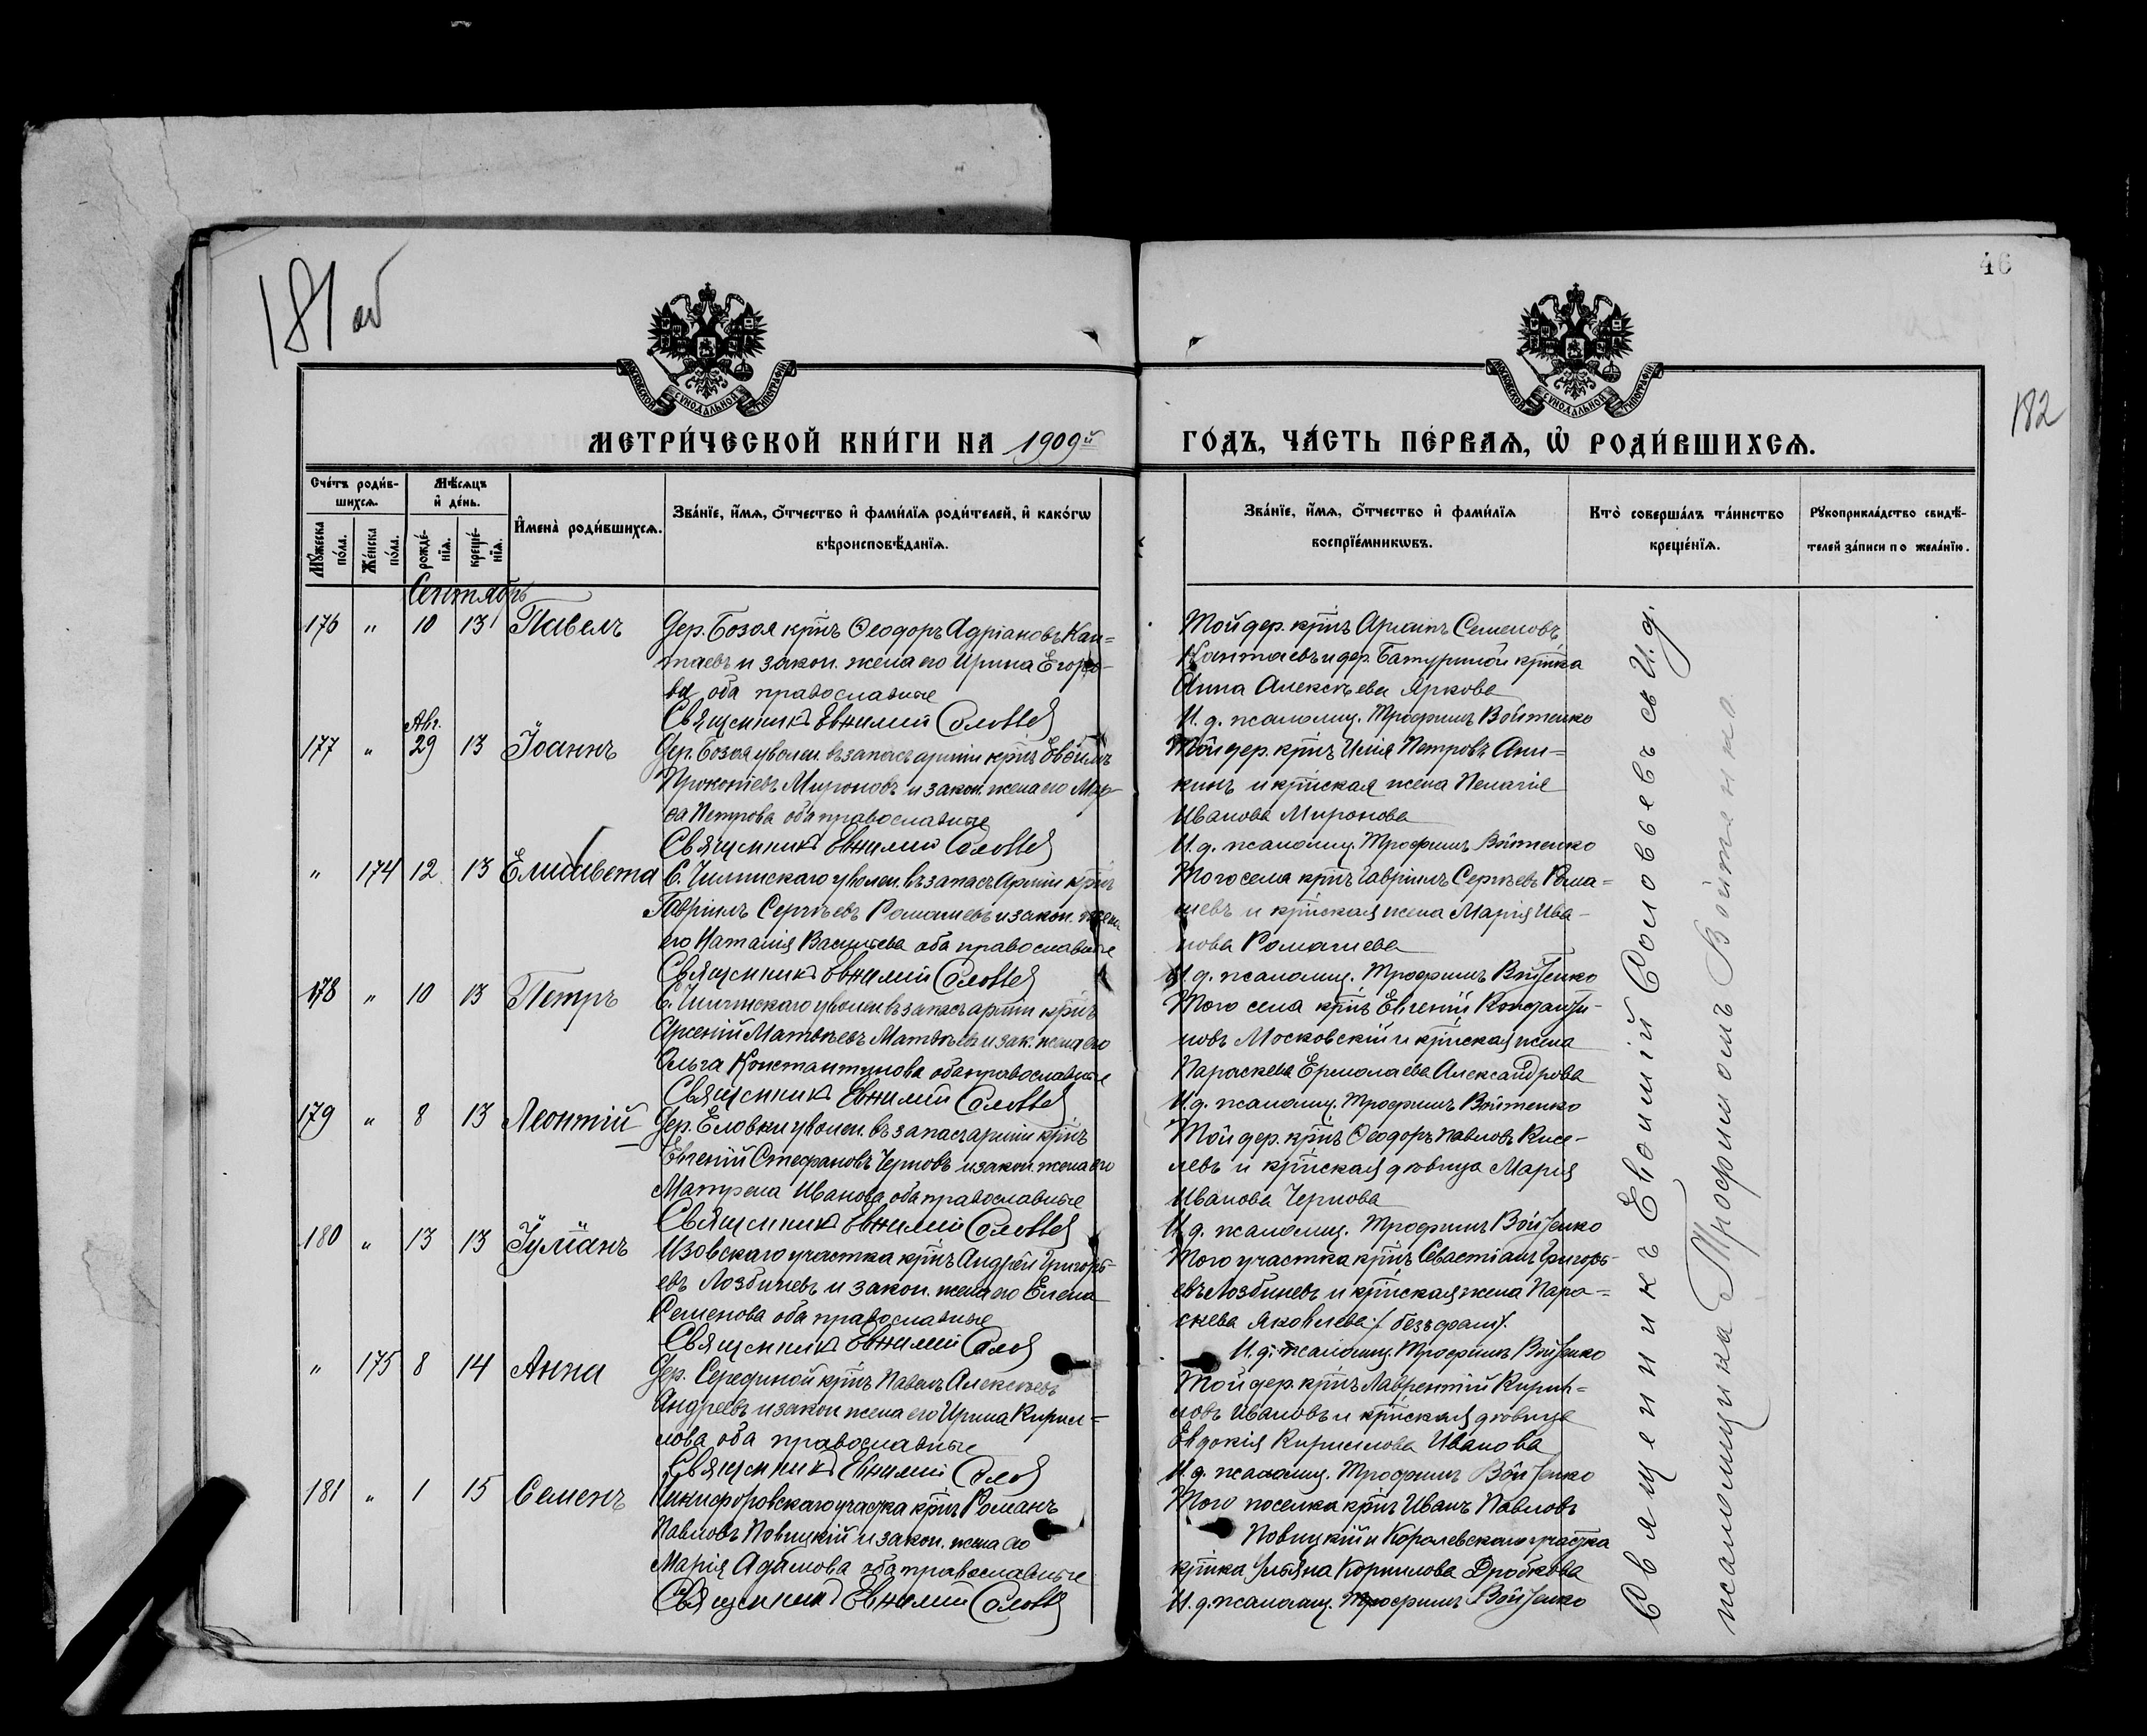 181 об
46
182
МОСКОВСКОЙ СУНОДАЛЬНОЙ ТИПОГРАФІИ
МОСКОВСКОЙ СУНОДАЛЬНОЙ ТИПОГРАФІИ
МЕТРИ́ЧЕСКОЙ КНИ́ГИ НА 1909й
ГО́ДЪ, ЧА́СТЬ ПЕ́РВАѦ, Ѡ҆ РОДИ́ВШИХСѦ.
Сче́тъ роди́в-
шихсѧ.
Мꙋ́жеска
по́ла.
Же́нска
по́ла.
Мѣ́сѧцъ
и҆ де́нь.
рожде́-
нїѧ.
креще́-
нїѧ.
И҆мена̀ роди́вшихсѧ.
Зва́нїе, и҆́мѧ, ѻ҆́тчество и҆ фами́лїѧ роди́телей, и҆ како́гѡ
вѣроисповѣ́данїѧ.
Зва́нїе, и҆́мѧ, ѻ҆́тчество и҆ фами́лїѧ
воспрїе́мникѡвъ.
Кто̀ соверша́лъ та́инство
креще́нїѧ.
Рꙋкоприкла́дство свидѣ́-
телей за́писи по жела́нїю.
Сентябрь
176 " 10 13 Павелъ
Дер. Бозоя крнъ Ѳеодоръ Адріановъ Кан-
таевъ и закон. жена его Ирина Егоро-
ва, оба православные
Священникъ Евѳимій Соловьев
Той дер. крнъ Семеновъ
Кантаевъ и дер. Батуриной крнка
Анна Алексѣева Яркова
И. д. псаломщ. Трофимъ Войтенко
Авг.
177 " 29 13 Іоаннъ
Дер. Бозоя уволен. въ запасъ арміи крнъ Евѳимъ
Прокопіевъ Мироновъ и закон. жена его Мар-
ѳа Петрова оба православные
Священникъ Евѳимій Соловьев
Той дер. крнъ Илія Петровъ Ани-
кинъ и крнская жена Пелагія
Иванова Миронова
И. д. псаломщ. Трофимъ Войтенко
" 174 12 13 Елисавета
С. уволен. въ запасъ Арміи крнъ
Гавріилъ Сергѣевъ Романевъ и закон. жена
его Наталія Васильева оба православные
Священникъ Евѳимій Соловьев
Того села крнъ Гавріилъ Сергѣевъ Рома-
невъ и крнская жена Марія Ива-
нова Романева
И. д. псаломщ. Трофимъ Войтенко
178 " 10 13 Петръ
С. уволен. въ запасъ арміи крнъ
Арсеній Матвѣевъ Матвѣевъ и зак. жена его
Ольга Константинова оба православные
Священникъ Евѳимій Соловьев
Того села крнъ Евгеній Константи-
новъ Московскій и крнская жена
Параскева Ермолаева Александрова
И. д. псаломщ. Трофимъ Войтенко
179 " 8 13 Леонтій
Дер. Еловки уволен. въ запасъ арміи крнъ
Евгеній Стефановъ Черновъ и закон. жена его
Матрена Иванова оба православные
Священникъ Евѳимій Соловьев
Той дер. крнъ Ѳеодоръ Павловъ Кисе-
левъ и крнская дѣвица Марія
Иванова Чернова
И. д. псаломщ. Трофимъ Войтенко
180 " 13 13 Іуліанъ
Изовскаго участка крнъ Андрей Григорь-
евъ Лозбиневъ и закон. жена его Елена
Семенова оба православные
Священникъ Евѳимій Солов
Того участка крнъ Севастіанъ Григорь-
евъ Лозбиневъ и крнская жена Пара-
скева Яковлева /безъ фам/.
И. д. псаломщ. Трофимъ Войтенко
" 175 8 14 Анна
Дер. Серединой крнъ Павелъ Алексѣевъ
Андреевъ и закон жена его Ирина Кирил-
лова оба православные
Священникъ Евѳимій Солов
Той дер. крнъ Лаврентій Кирил-
ловъ Ивановъ и крнская дѣвица
Евдокія Кириллова Иванова
И. д. псаломщ. Трофимъ Войтенко
181 " 1 15 Семенъ
Никифоровскаго участка крнъ Романъ
Павловъ Новицкій и закон. жена его
Марія Адамова оба православные
Священникъ Евѳимій Соловьев
Того поселка крнъ Иванъ Павловъ
Новицкій и Королевскаго участка
крнка Ульяна Корнилова Дробкова
И. д. псаломщ. Трофимъ Войтенко
Священникъ Евѳимій Соловьевъ съ И. д.
псаломщика Трофимомъ Войтенко.